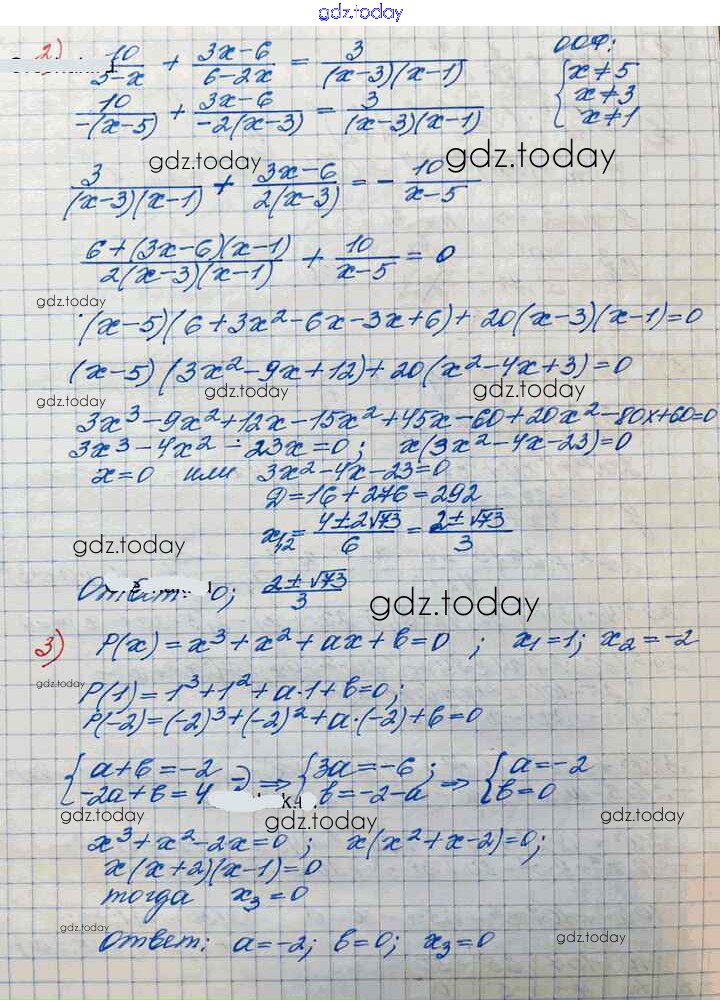 gdz.today
2) 10/(5-x) + (3x-6)/(6-2x) = 3/((x-3)(x-1)) ООФ:
10/(-(x-5)) + (3x-6)/(-2(x-3)) = 3/((x-3)(x-1)) { x≠5 x≠3 x≠1
gdz.today gdz.today
3/((x-3)(x-1)) + (3x-6)/(2(x-3)) = - 10/(x-5)
(6+(3x-6)(x-1))/(2(x-3)(x-1)) + 10/(x-5) = 0
gdz.today
(x-5)(6+3x²-6x-3x+6) + 20(x-3)(x-1)=0
(x-5)(3x²-9x+12)+20(x²-4x+3)=0
gdz.today gdz.today gdz.today
3x³-9x²+12x-15x²+45x-60+20x²-80x+60=0
3x³-4x²-23x=0; x(3x²-4x-23)=0
x=0 или 3x²-4x-23=0
D=16+276=292
x₁,₂ = (4±2√73)/6 = (2±√73)/3
gdz.today
Ответ: 0; (2±√73)/3
gdz.today
3) P(x)=x³+x²+ax+b=0; x₁=1; x₂=-2
gdz.today
P(1)=1³+1²+a·1+b=0;
P(-2)=(-2)³+(-2)²+a·(-2)+b=0
{ a+b=-2 -2a+b=4 -) ⇒ { 3a=-6; b=-2-a ⇒ { a=-2 b=0
gdz.today gdz.today gdz.today
x³+x²-2x=0; x(x²+x-2)=0;
x(x+2)(x-1)=0
тогда x₃=0
gdz.today gdz.today
Ответ: a=-2; b=0; x₃=0